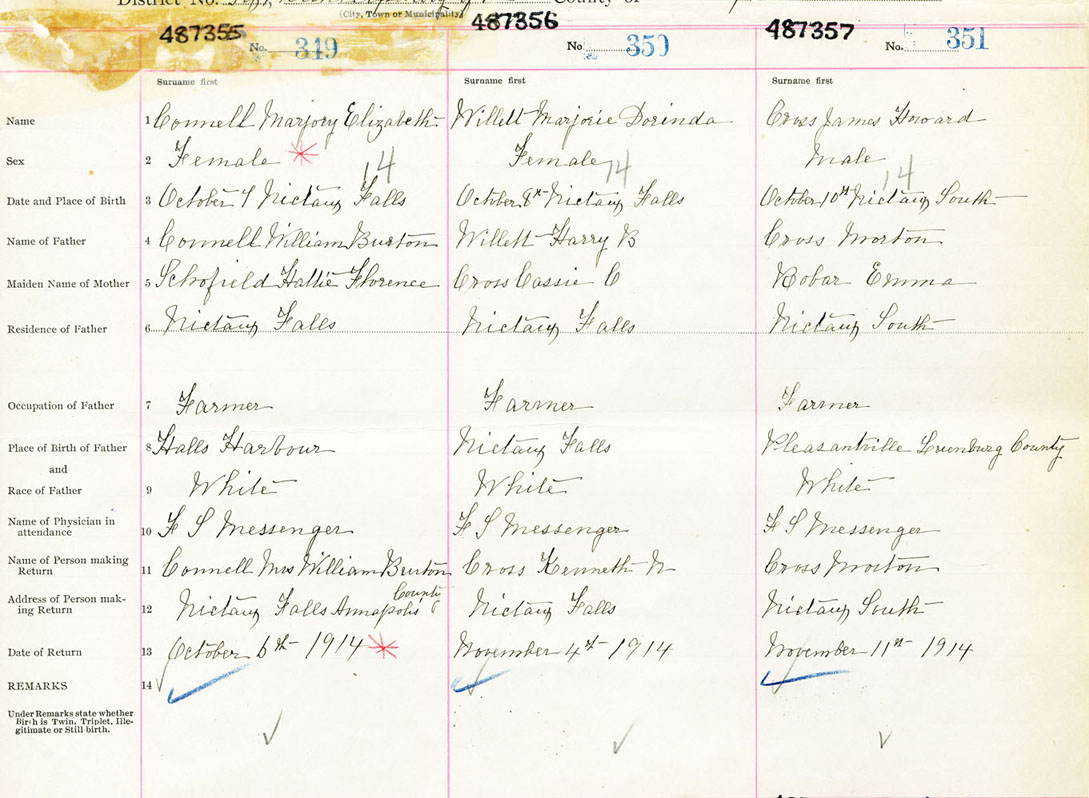 District No. County of
(City, Town or Municipality)
487355 487356 487357
No. 349 No. 350 No. 351
Surname first Surname first Surname first
Name 1 Connell Marjory Elizabeth Willett Marjorie Dorinda Cross James Howard
Sex 2 Female Female male
14 14 14
Date and Place of Birth 3 October 7 Nictaux Falls October 8th Nictaux Falls October 10th Nictaux South
Name of Father 4 Connell William Burton Willett Harry B Cross Morton
Maiden Name of Mother 5 Schofield Hattie Florence Cross Cassie C Robar Emma
Residence of Father 6 Nictaux Falls Nictaux Falls Nictaux South
Occupation of Father 7 Farmer Farmer Farmer
Place of Birth of Father 8 Halls Harbour Nictaux Falls Pleasantville Lunenburg County
and
Race of Father 9 White White White
Name of Physician in
attendance 10 F S Messenger F S Messenger F S Messenger
Name of Person making
Return 11 Connell Mrs William Burton Cross Kenneth N Cross Morton
Address of Person mak-
ing Return 12 Nictaux Falls Annapolis County Nictaux Falls Nictaux South
Date of Return 13 October 6th 1914 November 4th 1914 November 11th 1914
REMARKS 14
Under Remarks state whether
Birth is Twin, Triplet, Ille-
gitimate or Still birth.